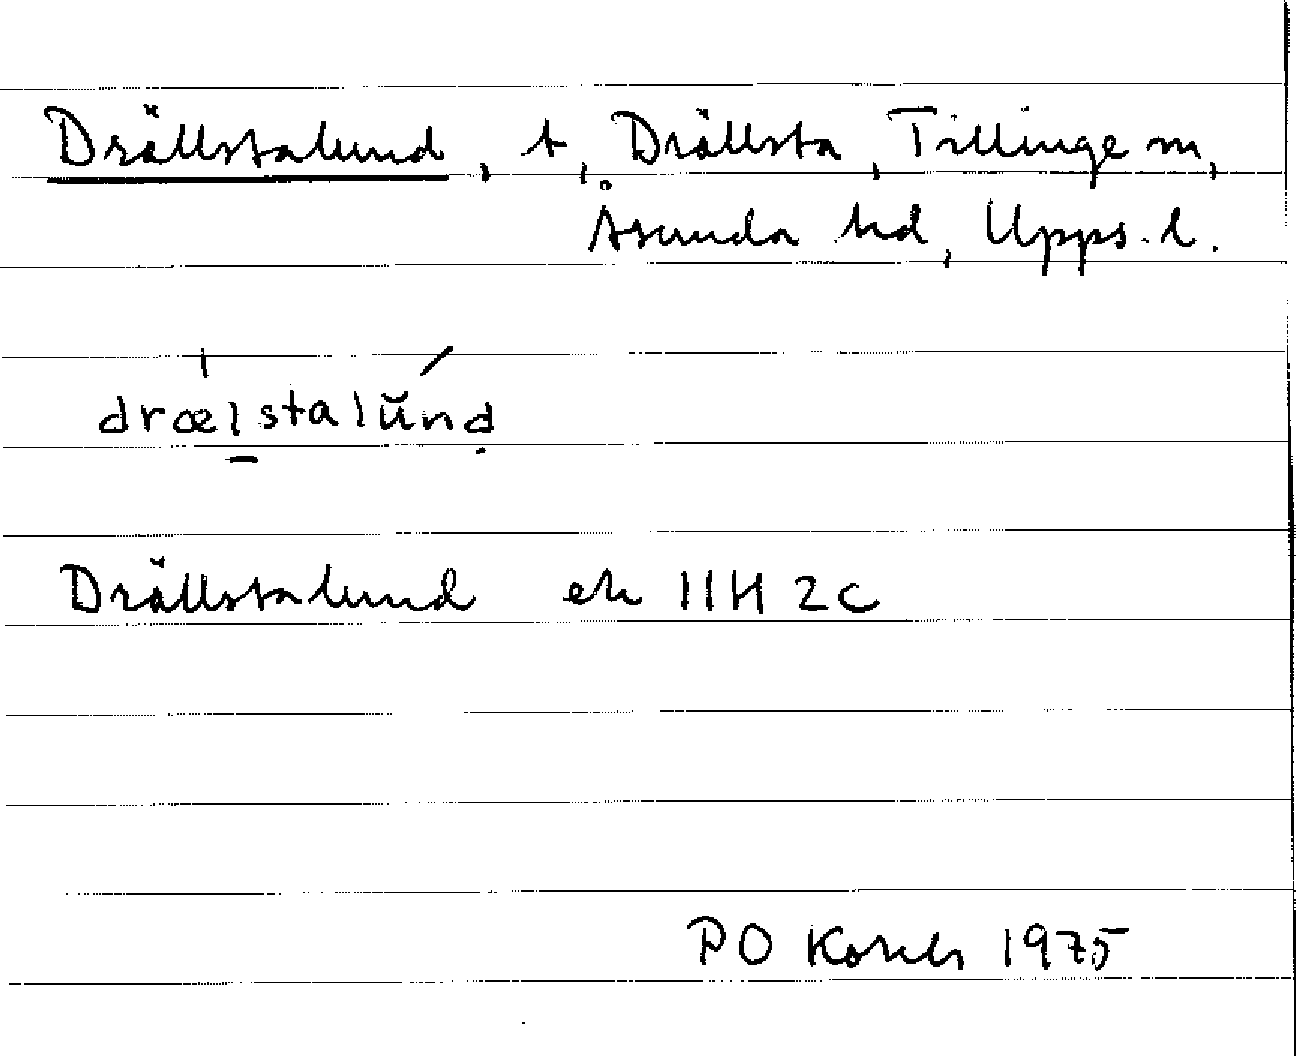 Drällstalund, t, Drällsta, Tillinge sn,
Åsunda hd, Upps. l.
drælstalŭnd
Drällstalund ek 11H 2c
PO 1975